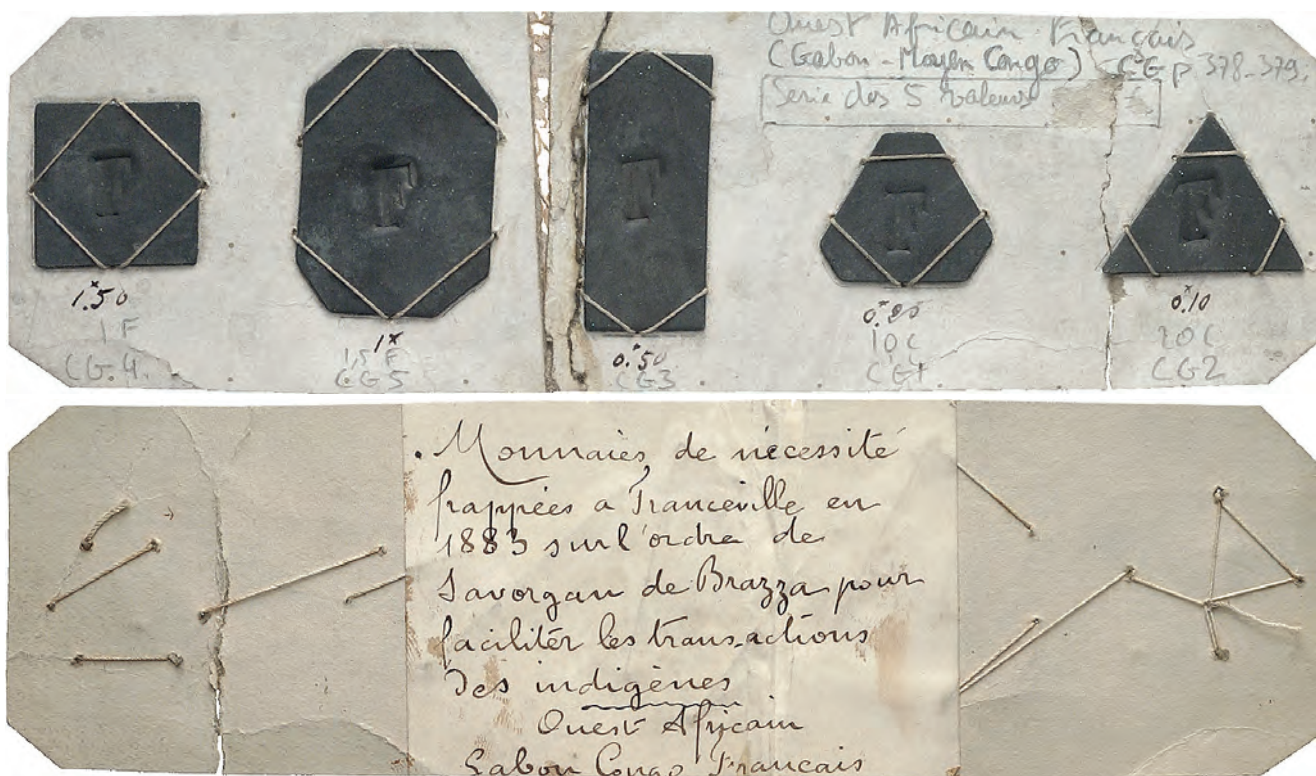 Ouest Africain Français
(Gabon - Moyen Congo) CGp 378-379.
Serie des 5 valeurs
F
F
F
F
F
1.50
1 F
CG.4.
1
1,5 F
CG5
0.50
CG3
0.20
10C
CG1
0.10
20C
CG2
. Monnaies de nécessité
frappées a Franceville en
1883 sur l'ordre de
Savorgan de Brazza pour
faciliter les transactions
des indigènes
Ouest Africain
Gabon Congo Français